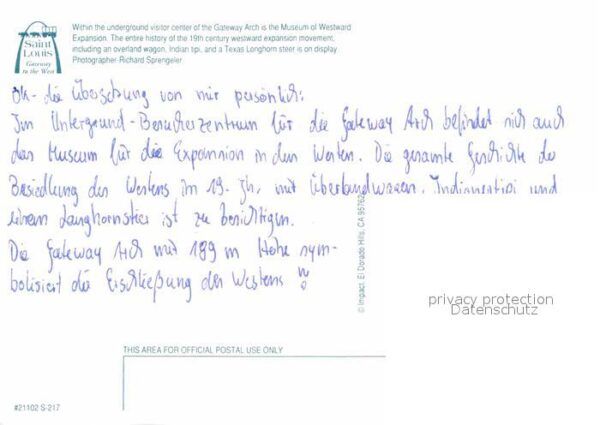 Saint
Louis
Gateway
to the West
Within the underground visitor center of the Gateway Arch is the Museum of Westward
Expansion. The entire history of the 19th century westward expansion movement,
including an overland wagon, Indian tipi, and a Texas Longhorn steer is on display
Photographer-Richard Sprengeler
Ok - die Übersetzung von mir persönlich:
Im Untergrund-Besucherzentrum für die Gateway Arch befindet sich auch
das Museum für die Expansion in den Westen. Die gesamte Geschichte der
Besiedlung des Westens im 19. Jh. mit Überlandwagen, Indianertipi und
einem Langhornstier ist zu besichtigen.
Die Gateway Arch mit 189 m Höhe sym-
bolisiert die Erschließung des Westens !
© Impact, El Dorado Hills, CA 95762
privacy protection
Datenschutz
THIS AREA FOR OFFICIAL POSTAL USE ONLY
#21102 S-217